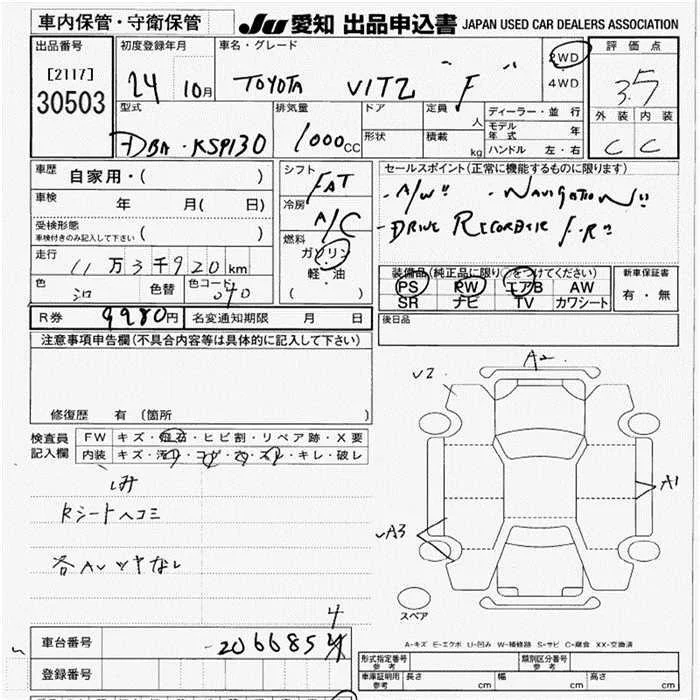 車内保管・守衛保管
JU 愛知 出品申込書 JAPAN USED CAR DEALERS ASSOCIATION
出品番号
[2117]
30503
初度登録年月
24 10月
車名・グレード
TOYOTA VITZ "F"
2WD
4WD
評価点
3.5
外装 内装
C C
型式
DBA・KSP130
排気量
1000CC
ドア
形状
定員 人
積載 kg
ディーラー・並行
モデル年式 年
ハンドル 左・右
車歴
自家用・( )
車検 年 月( 日)
受検形態
車検付きのみ記入して下さい ( )
走行
11万3千920km
色 シロ 色替 色コード 040
シフト
FAT
冷房
A/C
燃料
ガソリン
軽・油
( )
セールスポイント(正常に機能するものに限ります)
・A/W" ・NAVIGATION"
・DRIVE RECORDER F・R"
装備品(純正品に限り○をつけてください)
PS PW エアB AW
SR ナビ TV カワシート
新車保証書
有・無
R券 9980円 名変通知期限 月 日
後日品
注意事項申告欄(不具合内容等は具体的に記入して下さい)
修復歴 有 (箇所 )
検査員記入欄
FW キズ・飛石・ヒビ割・リペア跡・X要
内装 キズ・汚れ・コゲ・穴・スレ・キレ・破レ
シミ
Rシートヘコミ
各ALツヤなし
A2
V2
A1
A3
スペア
A-キズ E-エクボ U-凹み W-補修跡 S-サビ C-腐食 XX-交換済
車台番号 -2066854
登録番号
形式指定番号 参考
類別区分番号 参考
車庫証明用 参考 長さ cm 幅 cm 高さ cm